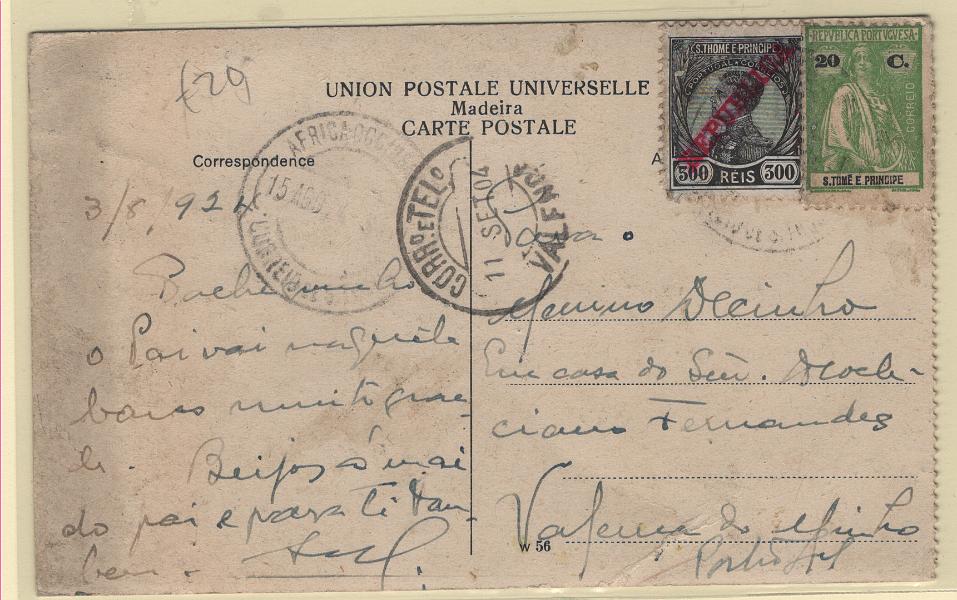 £29
UNION POSTALE UNIVERSELLE
Madeira
CARTE POSTALE
Correspondence
A
S. THOMÉ E PRINCIPE
PORTUGAL CORREIOS
REPUBLICA
300 RÉIS 300
REPVBLICA PORTVGVESA
20 C.
CORREIO
S. TOMÉ E PRINCIPE
AFRICA OCC
15 AGO
CORRO. E TELO.
11 SET 04
VALEN
3/8/924
o Pai vai naquele
barco muito gran-
de. Beijos á mãi
do pai e para ti tam-
bem.
Menino Decinho
Em casa do Snr. Diocle-
ciano Fernandez
Valença do Minho
Portugal
W 56